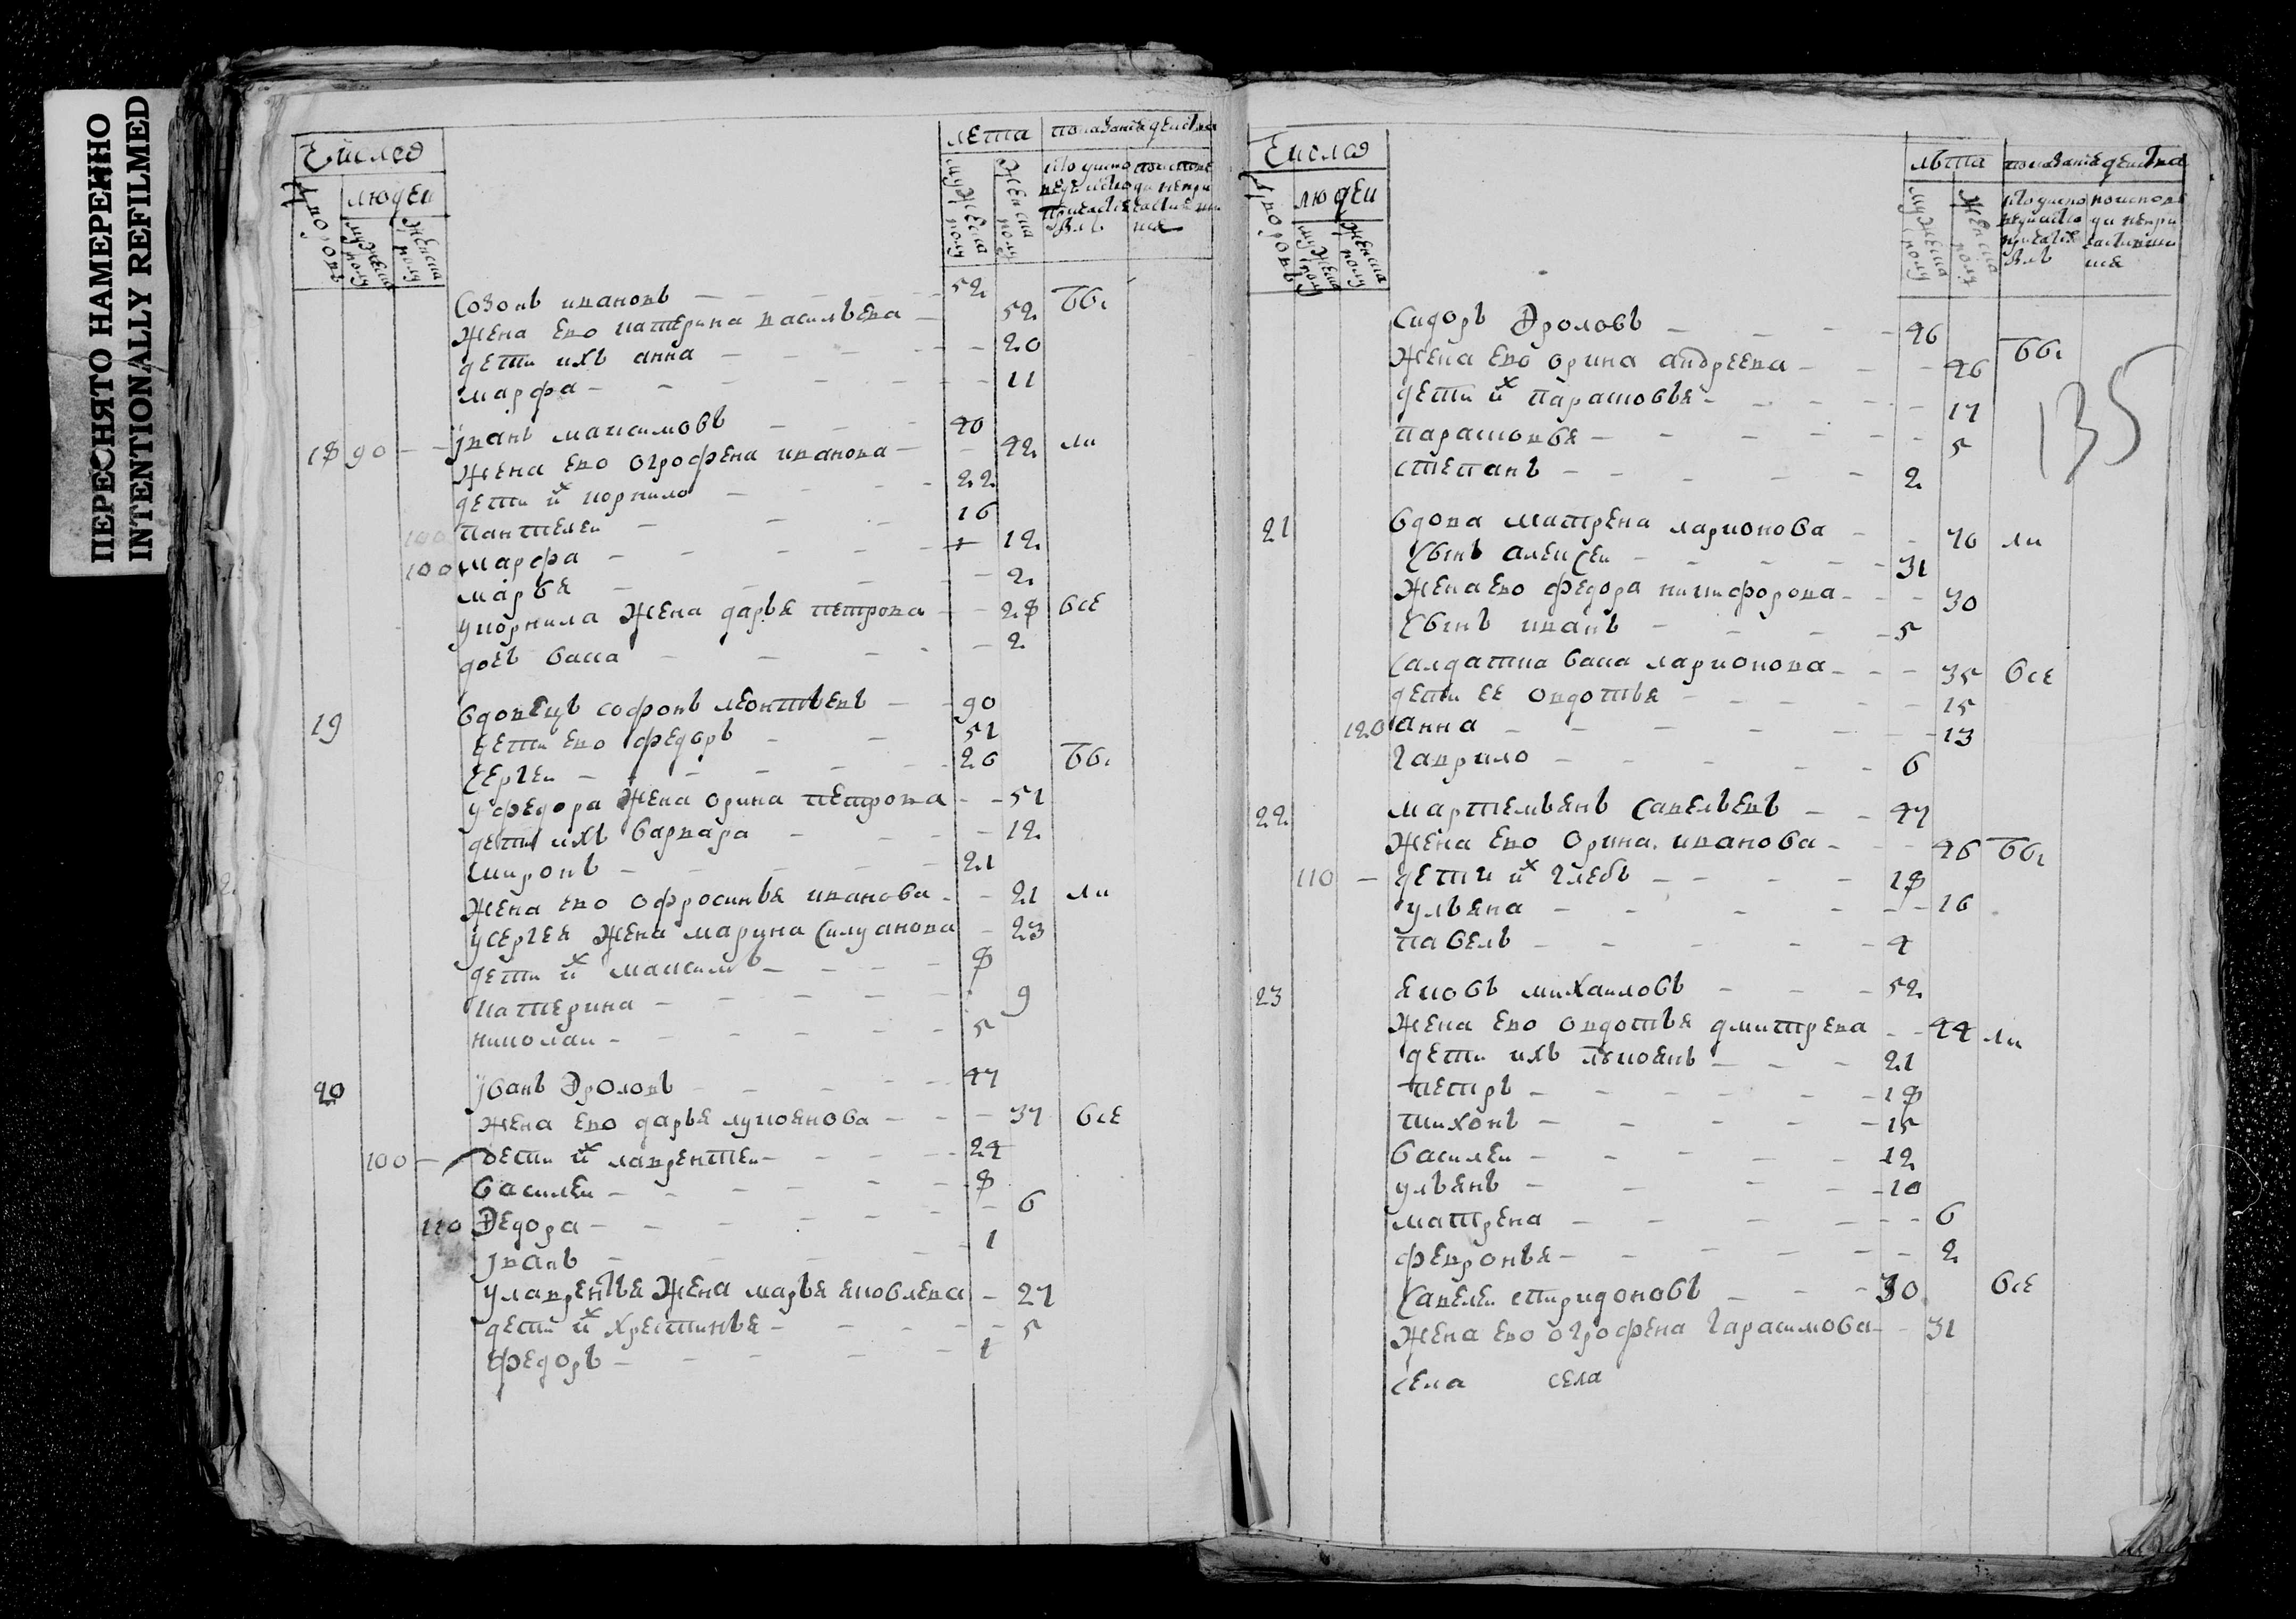 ПЕРЕСНЯТО НАМЕРЕННО
INTENTIONALLY REFILMED
Число
дворовъ
людеи
мужеска полу
женска полу
лета
мужеска полу
женска полу
показание действа
Созонъ ивановъ — 52 бы
жена ево катерина васильева — 52
дети ихъ анна — 20
марфа — 11
18 90 — іванъ максимовъ 40
жена ево огрофена иванова — 42 ли
дети их корнило — 22
100 пантелеи — 16
100 марфа — 12
марья — 2
у корнила жена дарья петрова — 28 все
дочь васса — 2
19 вдовецъ софонъ леонтьевъ — 90
дети ево федоръ — 51
сергеи — 26 бы
у федора жена орина петрова — 51
дети ихъ варвара — 12
миронъ — 21
жена ево офросинья иванова — 21 ли
у сергея жена марина силуанова — 23
дети их максимъ — 8
катерина — 9
николаи — 5
20 іванъ Фроловъ — 47
жена ево дарья лукоянова — 37 все
100 — дети их лаврентеи — 24
василеи — 8
110 Федора — 6
іванъ — 1
у лаврентья жена марья яковлева — 27
дети их христинья — 5
федоръ — 1
Число
дворовъ
людеи
мужеска полу
женска полу
льта
мужеска полу
женска полу
показание действа
135
Сидоръ Фроловъ — 46
жена ево орина андреева — 46 бы
дети их парасковья — 17
парасковья — 5
степанъ — 2
21 вдова матрена ларионова — 70 ли
сынъ алексеи — 31
жена ево федора никифорова — 30
сынъ иванъ — 5
салдатка васа ларионова — 35 все
дети ее овдотья — 15
120 анна — 13
гаврило — 6
22 мартемьянъ савельевъ — 47
жена ево орина иванова — 46 бы
110 — дети их глебъ — 18
ульяна — 16
павелъ — 4
23 яковъ михаиловъ — 52
жена ево овдотья дмитрева — 44 ли
дети ихъ лукоянъ — 21
петръ — 18
тихонъ — 15
василеи — 12
ульянъ — 10
матрена — 6
февронья — 2
савелеи спиридоновъ — 30 все
жена ево огрофена гарасимова — 31
села села